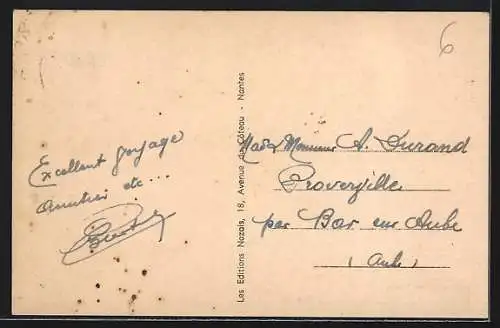 6
Excellent voyage
amitiés etc...
Les Editions Nozais, 18, Avenue du Côteau - Nantes
Mad & Monsieur A. Durand
Proverville
par Bar sur Aube
(Aube)